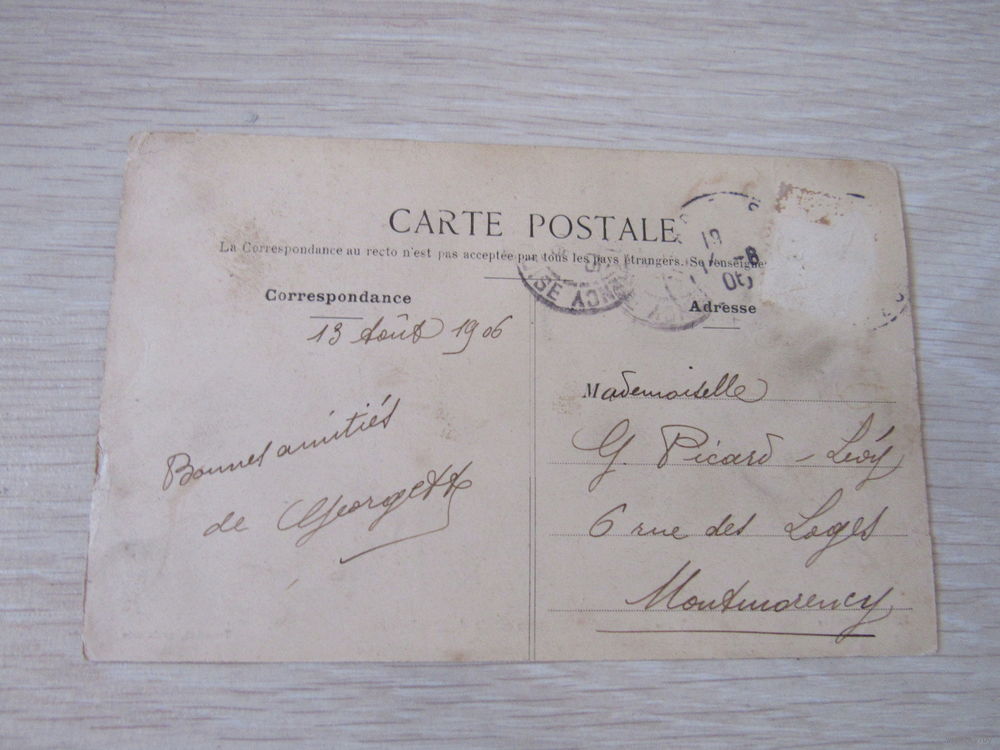 CARTE POSTALE
La Correspondance au recto n'est pas acceptée par tous les pays étrangers. (Se renseigne
Correspondance
13 Août 1906
Bonnes amitiés
de Georgette
Adresse
Mademoiselle
G. Picard - Lévy
6 rue des Loges
Montmorency
13
-8
06